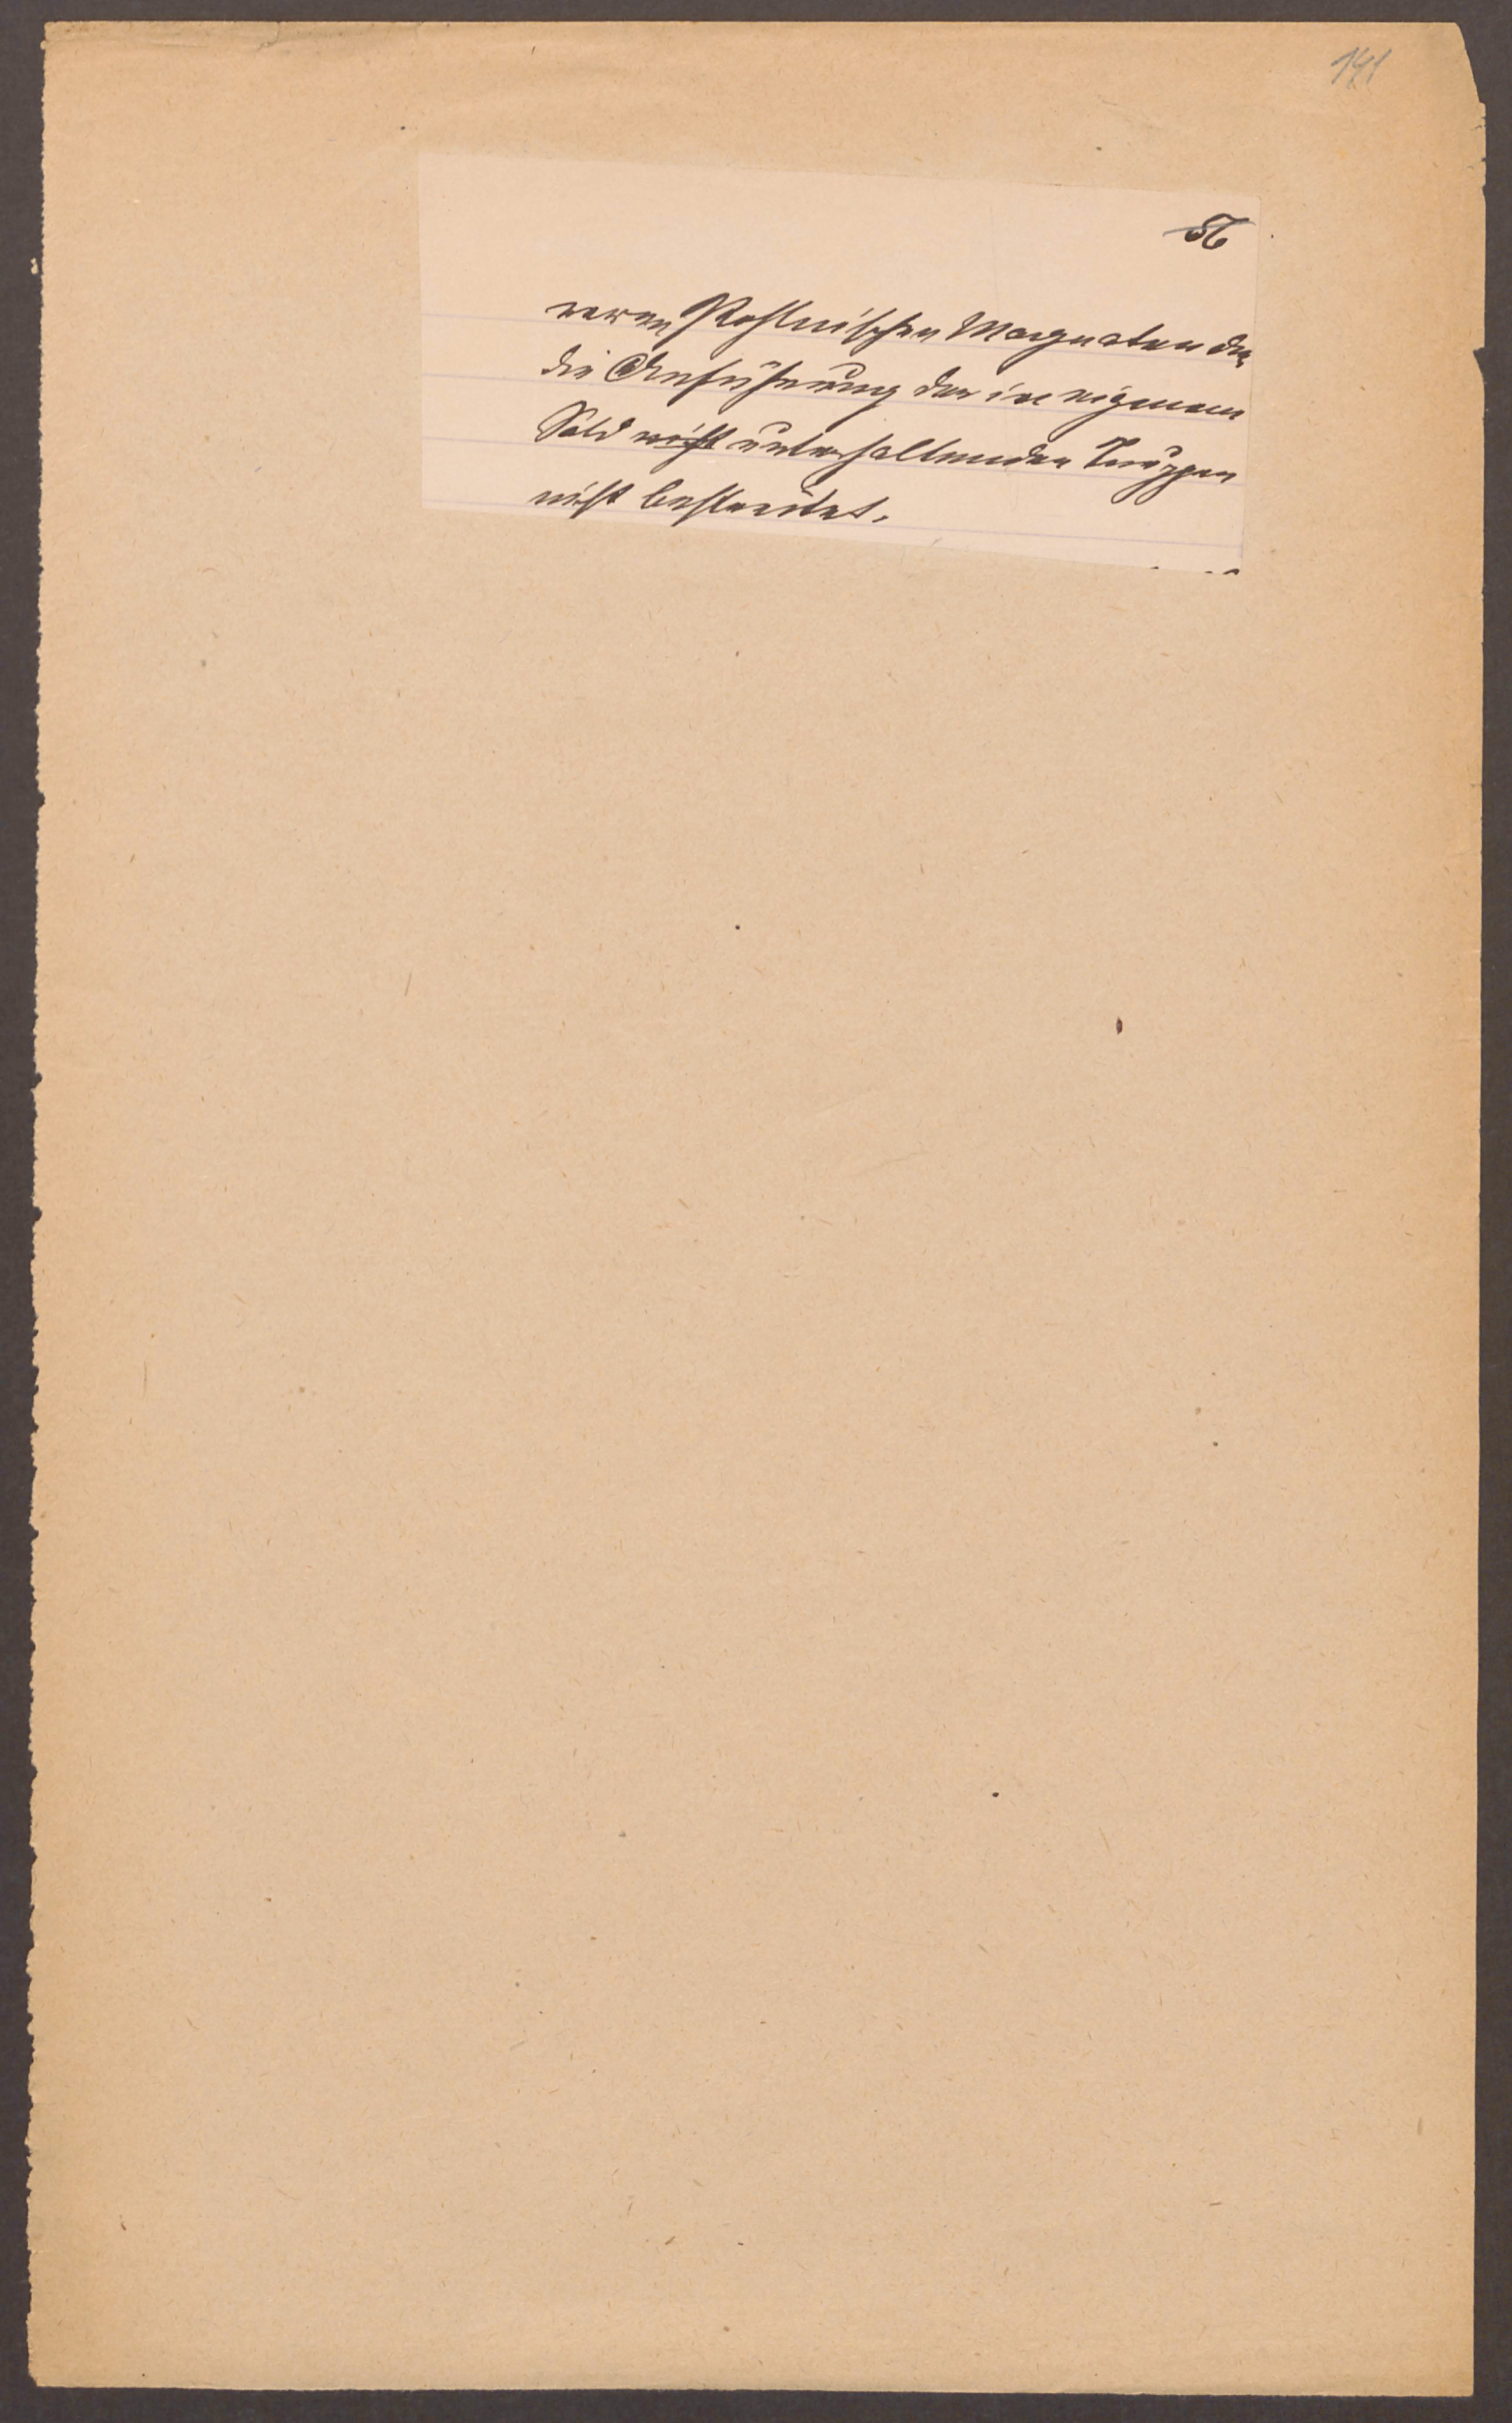 141
56
Pohlnischen Magnaten der
die Anführung der in eigenem
Sold nicht unterhaltenden Truppen
nicht bestreitet.